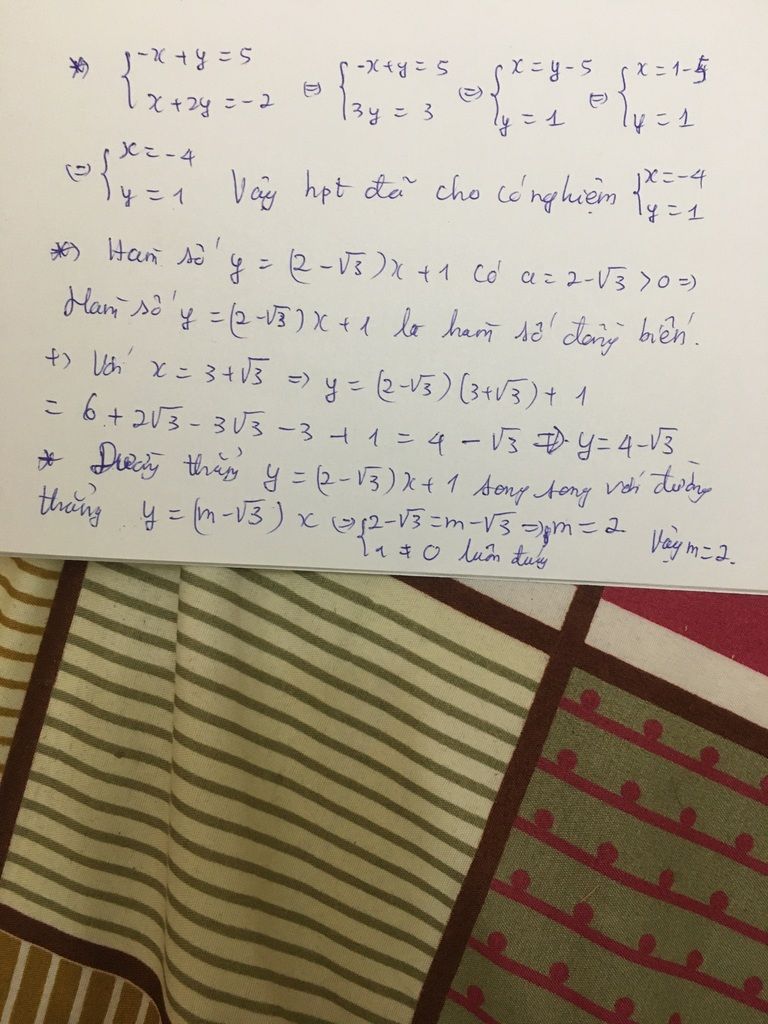 *) { -x + y = 5 ; x + 2y = -2 ⇔ { -x + y = 5 ; 3y = 3 ⇔ { x = y - 5 ; y = 1 ⇔ { x = 1 - 5 ; y = 1
⇔ { x = -4 ; y = 1 Vậy hpt đã cho có nghiệm { x = -4 ; y = 1
*) Hàm số y = (2 - √3)x + 1 có a = 2 - √3 > 0 =>
Hàm số y = (2 - √3)x + 1 là hàm số đồng biến.
+) Với x = 3 + √3 => y = (2 - √3)(3 + √3) + 1
= 6 + 2√3 - 3√3 - 3 + 1 = 4 - √3 => y = 4 - √3
* Đường thẳng y = (2 - √3)x + 1 song song với đường
thẳng y = (m - √3)x ⇔ { 2 - √3 = m - √3 => m = 2 ; 1 ≠ 0 luôn đúng Vậy m = 2.